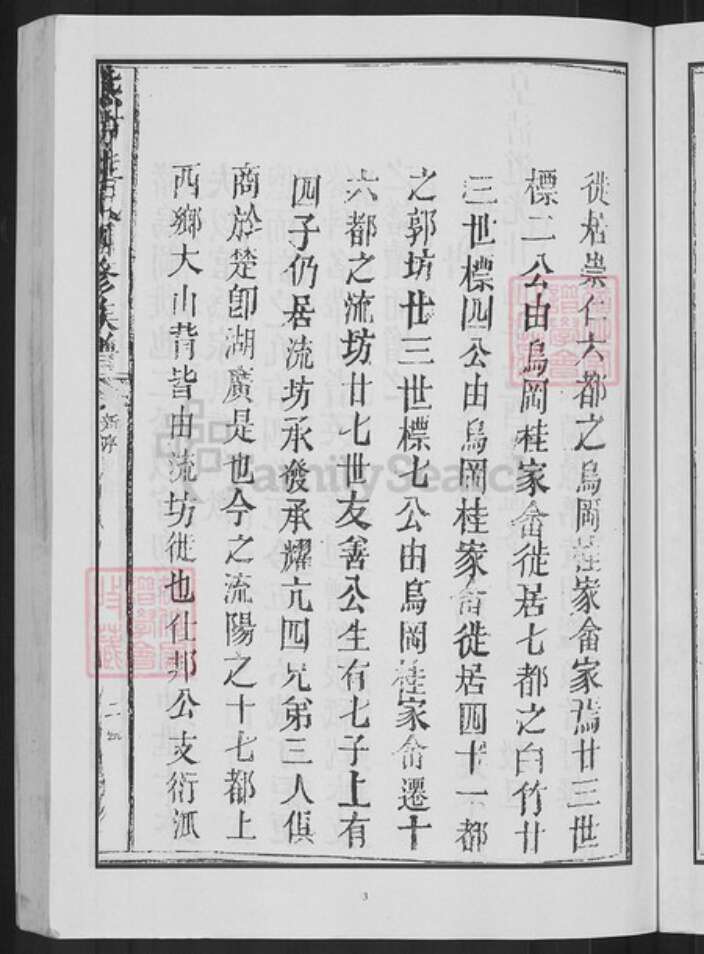 徙居崇仁六都之烏岡桂家畲家焉廿三世
標二公由烏岡桂家畲徙居七都之白竹廿
三世標四公由烏岡桂家畲徙居四十一都
之郭坊廿三世標七公由烏岡桂家畲遷十
六都之流坊廿七世友善公生有七子上有
四子仍居流坊承發承耀亢四兄弟三人俱
商於楚卽湖廣是也今之流陽之十七都上
西鄉大山背皆由流坊徙也仕郭公支衍派
修族譜
新序
二
FamilySearch
3